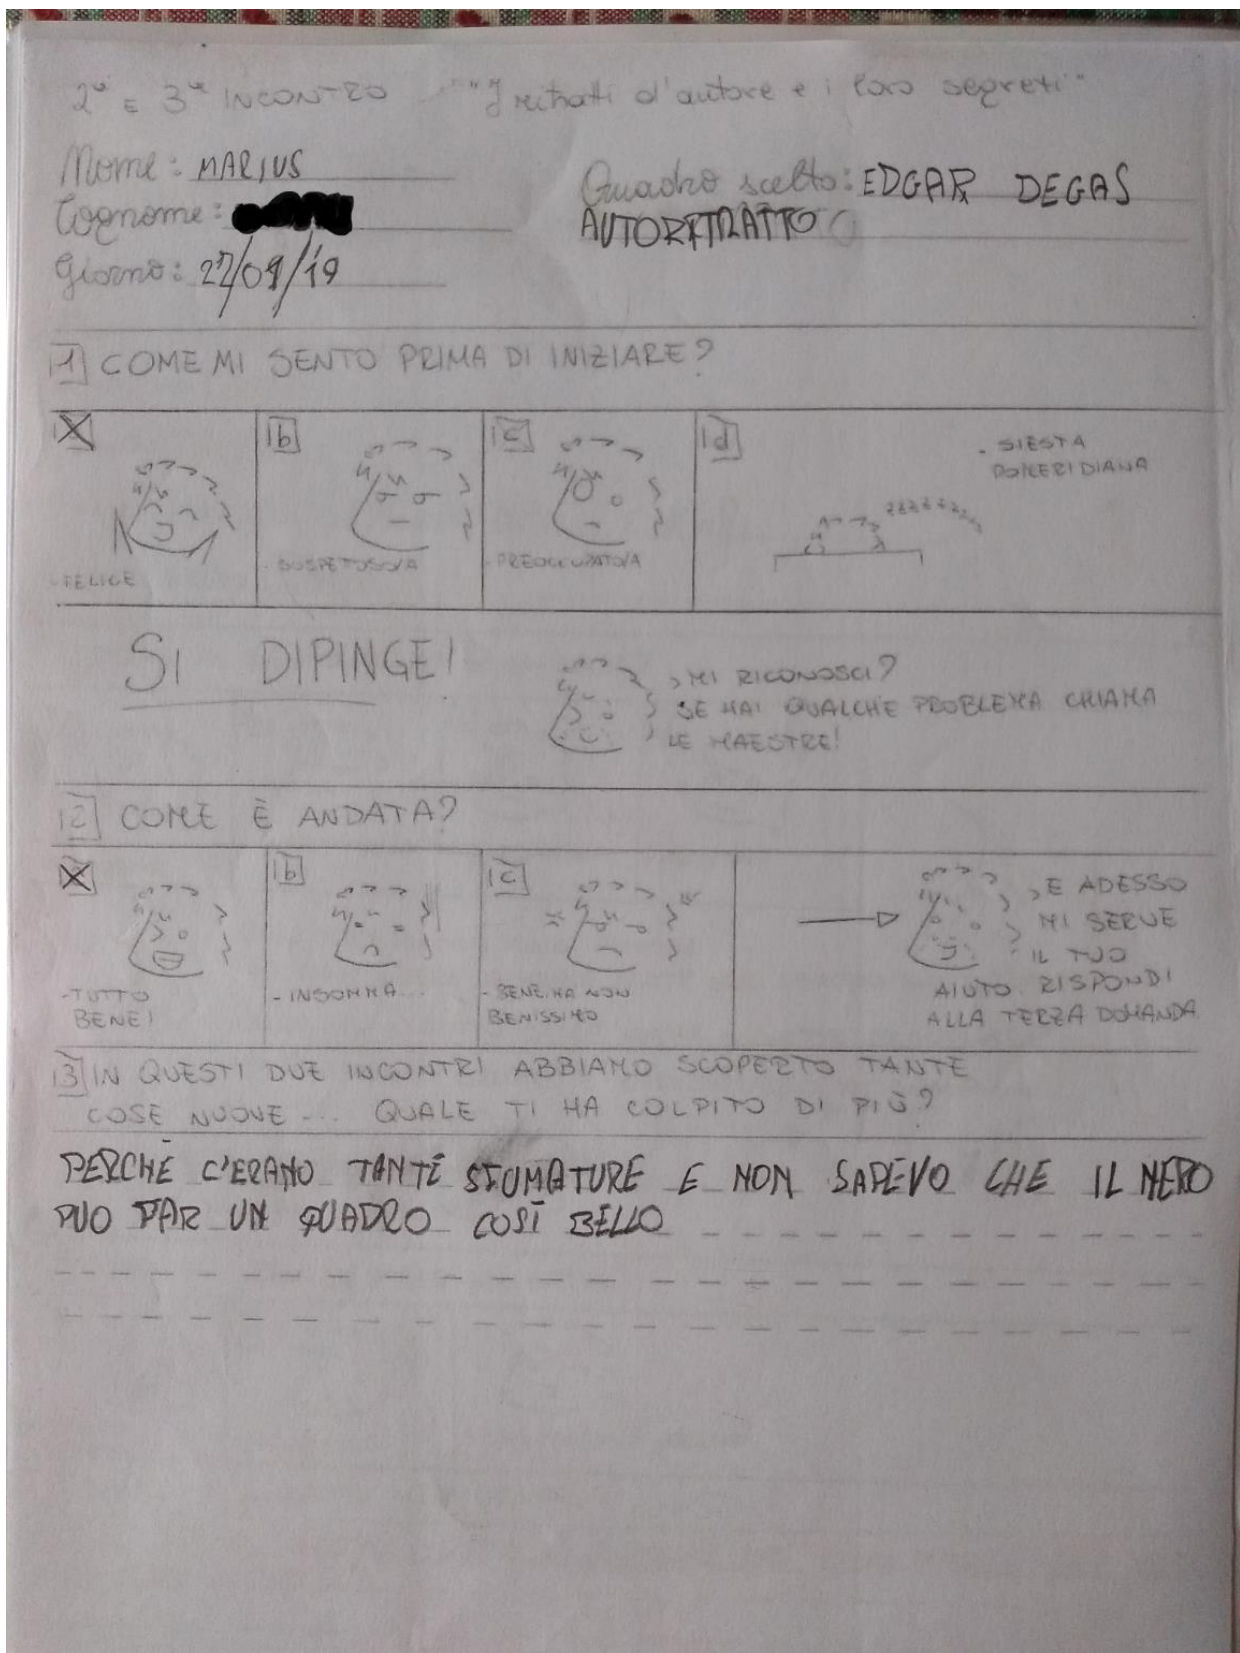 2ª E 3ª INCONTRO "I ritratti d'autore e i loro segreti"
Nome: MARIUS
Cognome:
Giorno: 27/09/19
Quadro scelto: EDGAR DEGAS
AUTORITRATTO
1 COME MI SENTO PRIMA DI INIZIARE?
- FELICE
b
- SOSPETOSO/A
c
- PREOCCUPATO/A
d
- SIESTA
POMERIDIANA
ZZZZZZZZ
SI DIPINGE!
MI RICONOSCI?
SE HAI QUALCHE PROBLEMA CHIAMA
LE MAESTRE!
2 COME È ANDATA?
- TUTTO
BENE!
b
- INSOMMA...
c
- BENE MA NON
BENISSIMO
E ADESSO
MI SERVE
IL TUO
AIUTO RISPONDI
ALLA TERZA DOMANDA
3 IN QUESTI DUE INCONTRI ABBIAMO SCOPERTO TANTE
COSE NUOVE ... QUALE TI HA COLPITO DI PIÙ?
PERCHÉ C'ERANO TANTE SFUMATURE E NON SAPEVO CHE IL NERO
PUO FAR UN QUADRO COSÌ BELLO